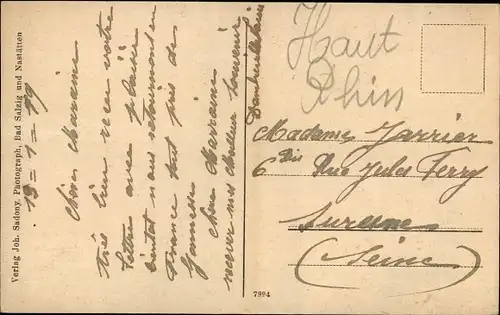 Verlag Joh. Sadony, Photograph, Bad Salzig und Nastätten
19 = 1 = 19
Chère Marraine
très bien reçu votre
lettre avec plaisir
bientot nous retournons en
France tout près de
Chère Marraine
recever mes Meilleur Souvenir
Haut
Rhin
Madame Jarrier
6 Bis Rue Jules Ferry
Suresne
(Seine)
7994